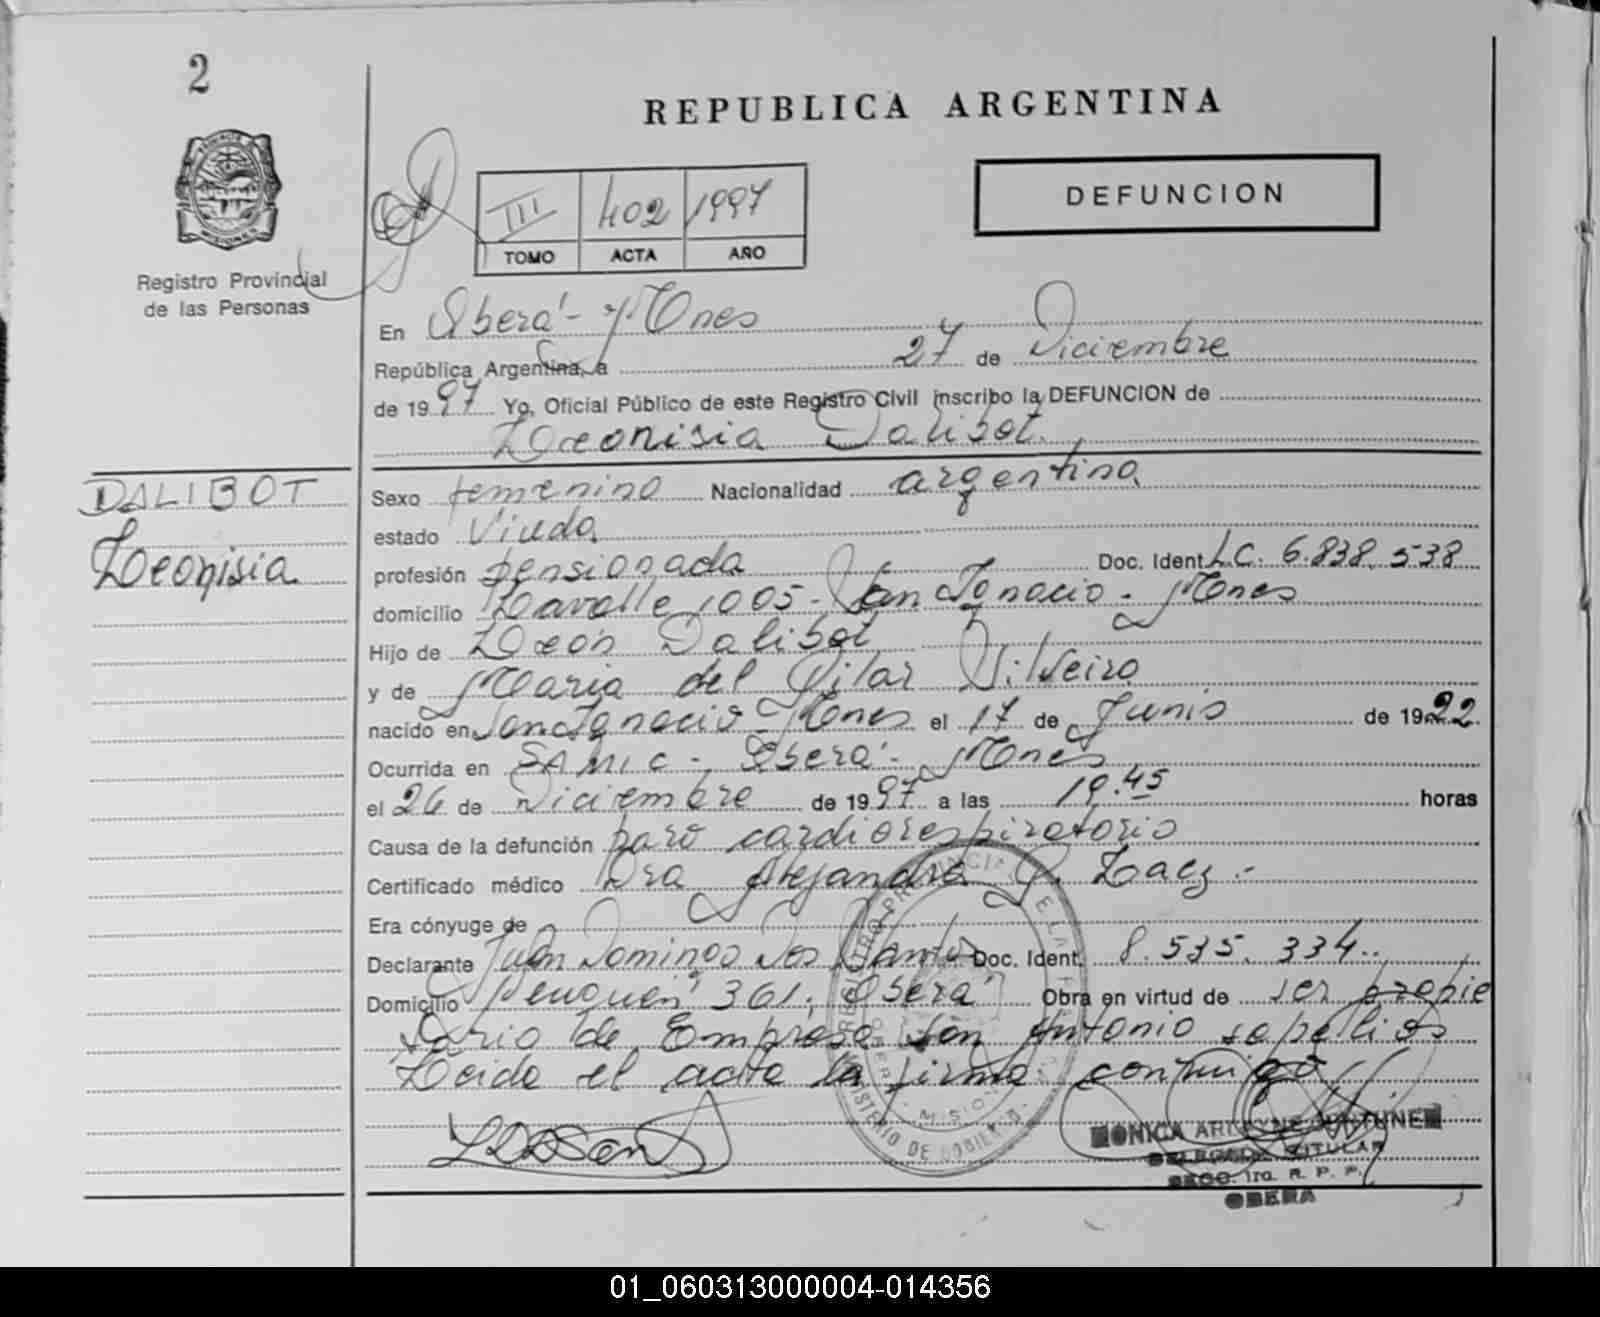 2
REPUBLICA ARGENTINA
DEFUNCION
III 402 1997
TOMO ACTA AÑO
PROVINCIA DE
MISIONES
Registro Provincial
de las Personas
En Oberá - Mnes
República Argentina, a 27 de Diciembre
de 1997 Yo, Oficial Público de este Registro Civil inscribo la DEFUNCION de
Leonisia Dalibot.
DALIBOT
Leonisia
Sexo femenino Nacionalidad argentina
estado Viuda
profesión pensionada Doc. Ident L.C. 6.838.538
domicilio Lavalle 1005 - San Ignacio - Mnes
Hijo de León Dalibot
y de Maria del Pilar Silveira
nacido en San Ignacio - Mnes el 17 de Junio de 1922.
Ocurrida en SAMIC - Oberá - Mnes
el 26 de Diciembre de 1997 a las 19.45 horas
Causa de la defunción paro cardiorespiratorio
Certificado médico Dra Alejandra
Era cónyuge de
Declarante Juan Domingo Dos Santos Doc. Ident. 8.535.334..
Domicilio Neuquén 361, Oberá Obra en virtud de ser propie
tario de Empresa San Antonio sepelios
Leida el acta la firma conmigo
MINISTERIO DE GOBIERNO
MISIONES
DELEGADA TITULAR
SECC. 1ra. R. P. P.
OBERA
01_060313000004-014356